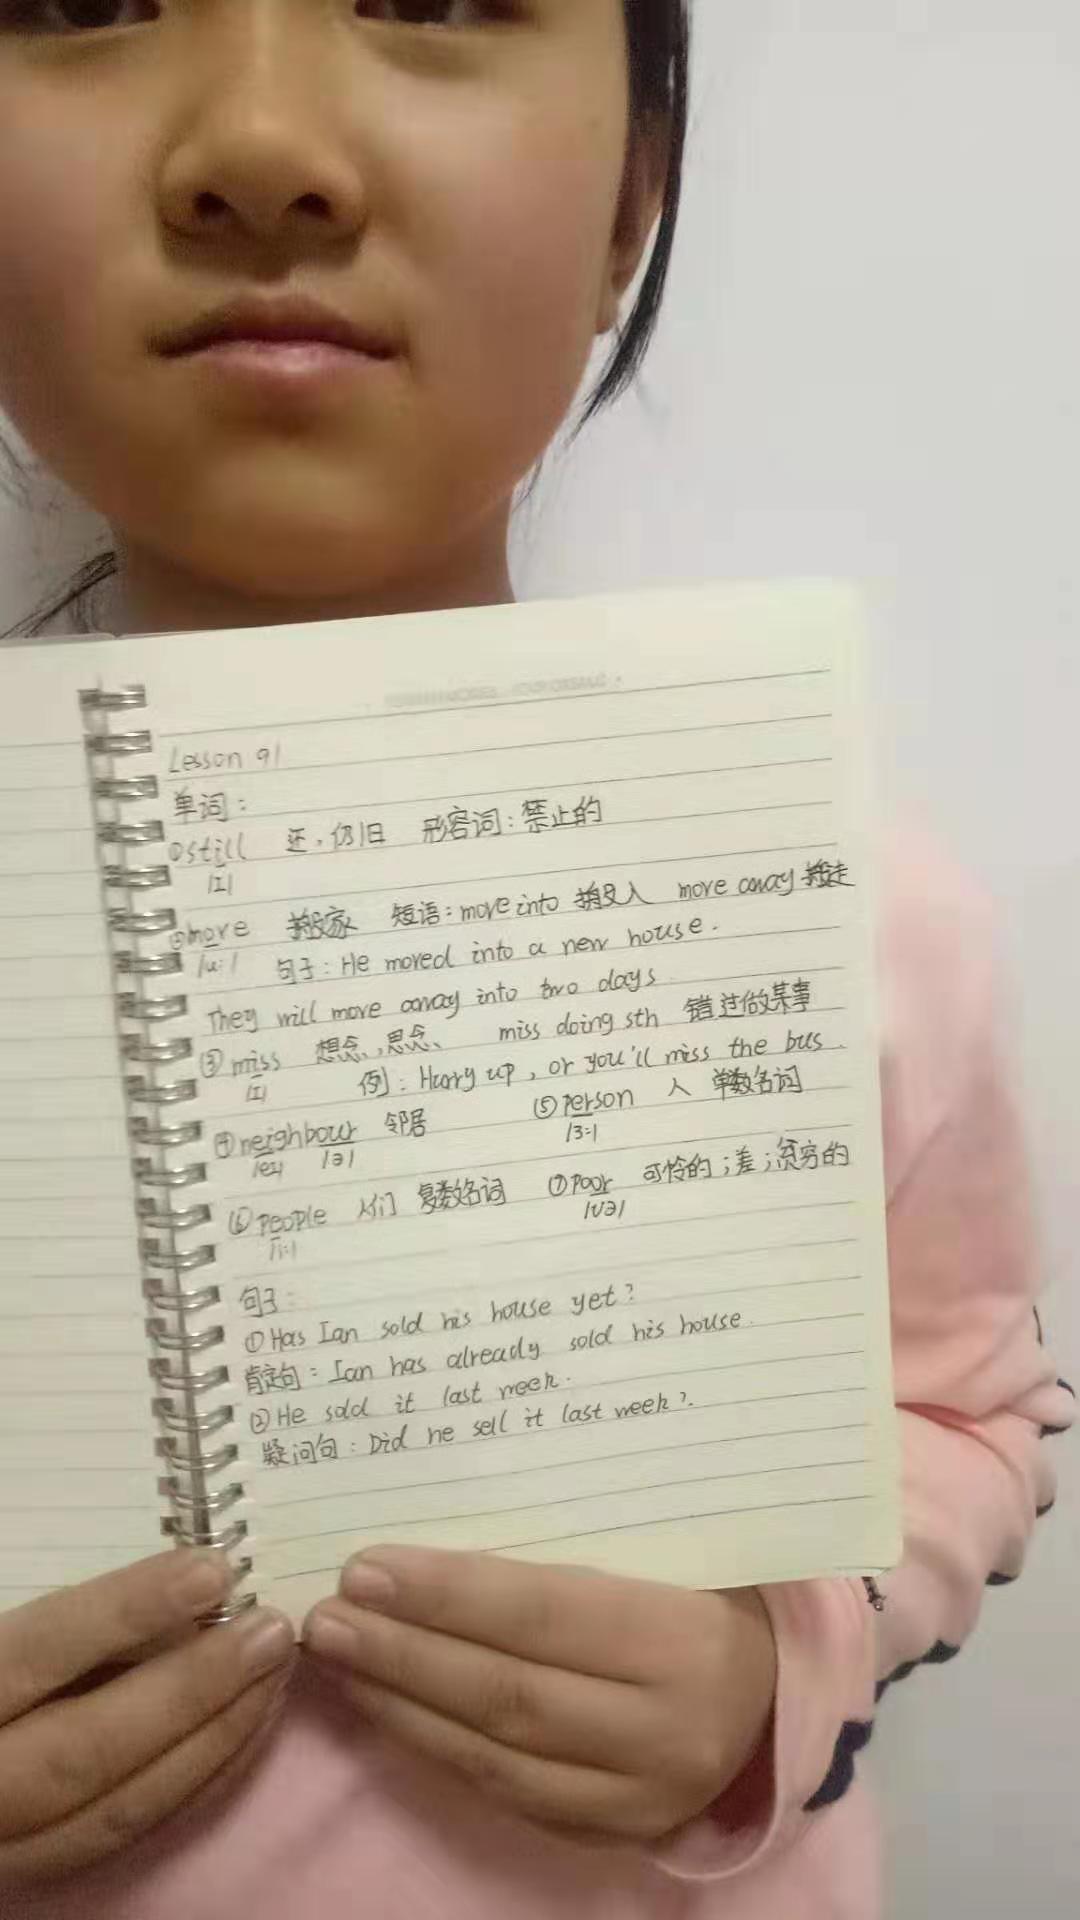 Lesson 91
单词：
①still 还，仍旧 形容词：禁止的
/ɪ/
②move 搬家 短语：move into 搬入 move away 搬走
/u:/ 句子：He moved into a new house.
They will move away into two days.
③miss 想念，思念 miss doing sth 错过做某事
/ɪ/ 例：Hurry up, or you'll miss the bus.
④neighbour 邻居 ⑤person 人 单数名词
/eɪ/ /ə/ /ɜ:/
⑥people 人们 复数名词 ⑦poor 可怜的；差；贫穷的
/i:/ /ʊə/
句子：
①Has Ian sold his house yet?
肯定句：Ian has already sold his house.
②He sold it last week.
疑问句：Did he sell it last week?